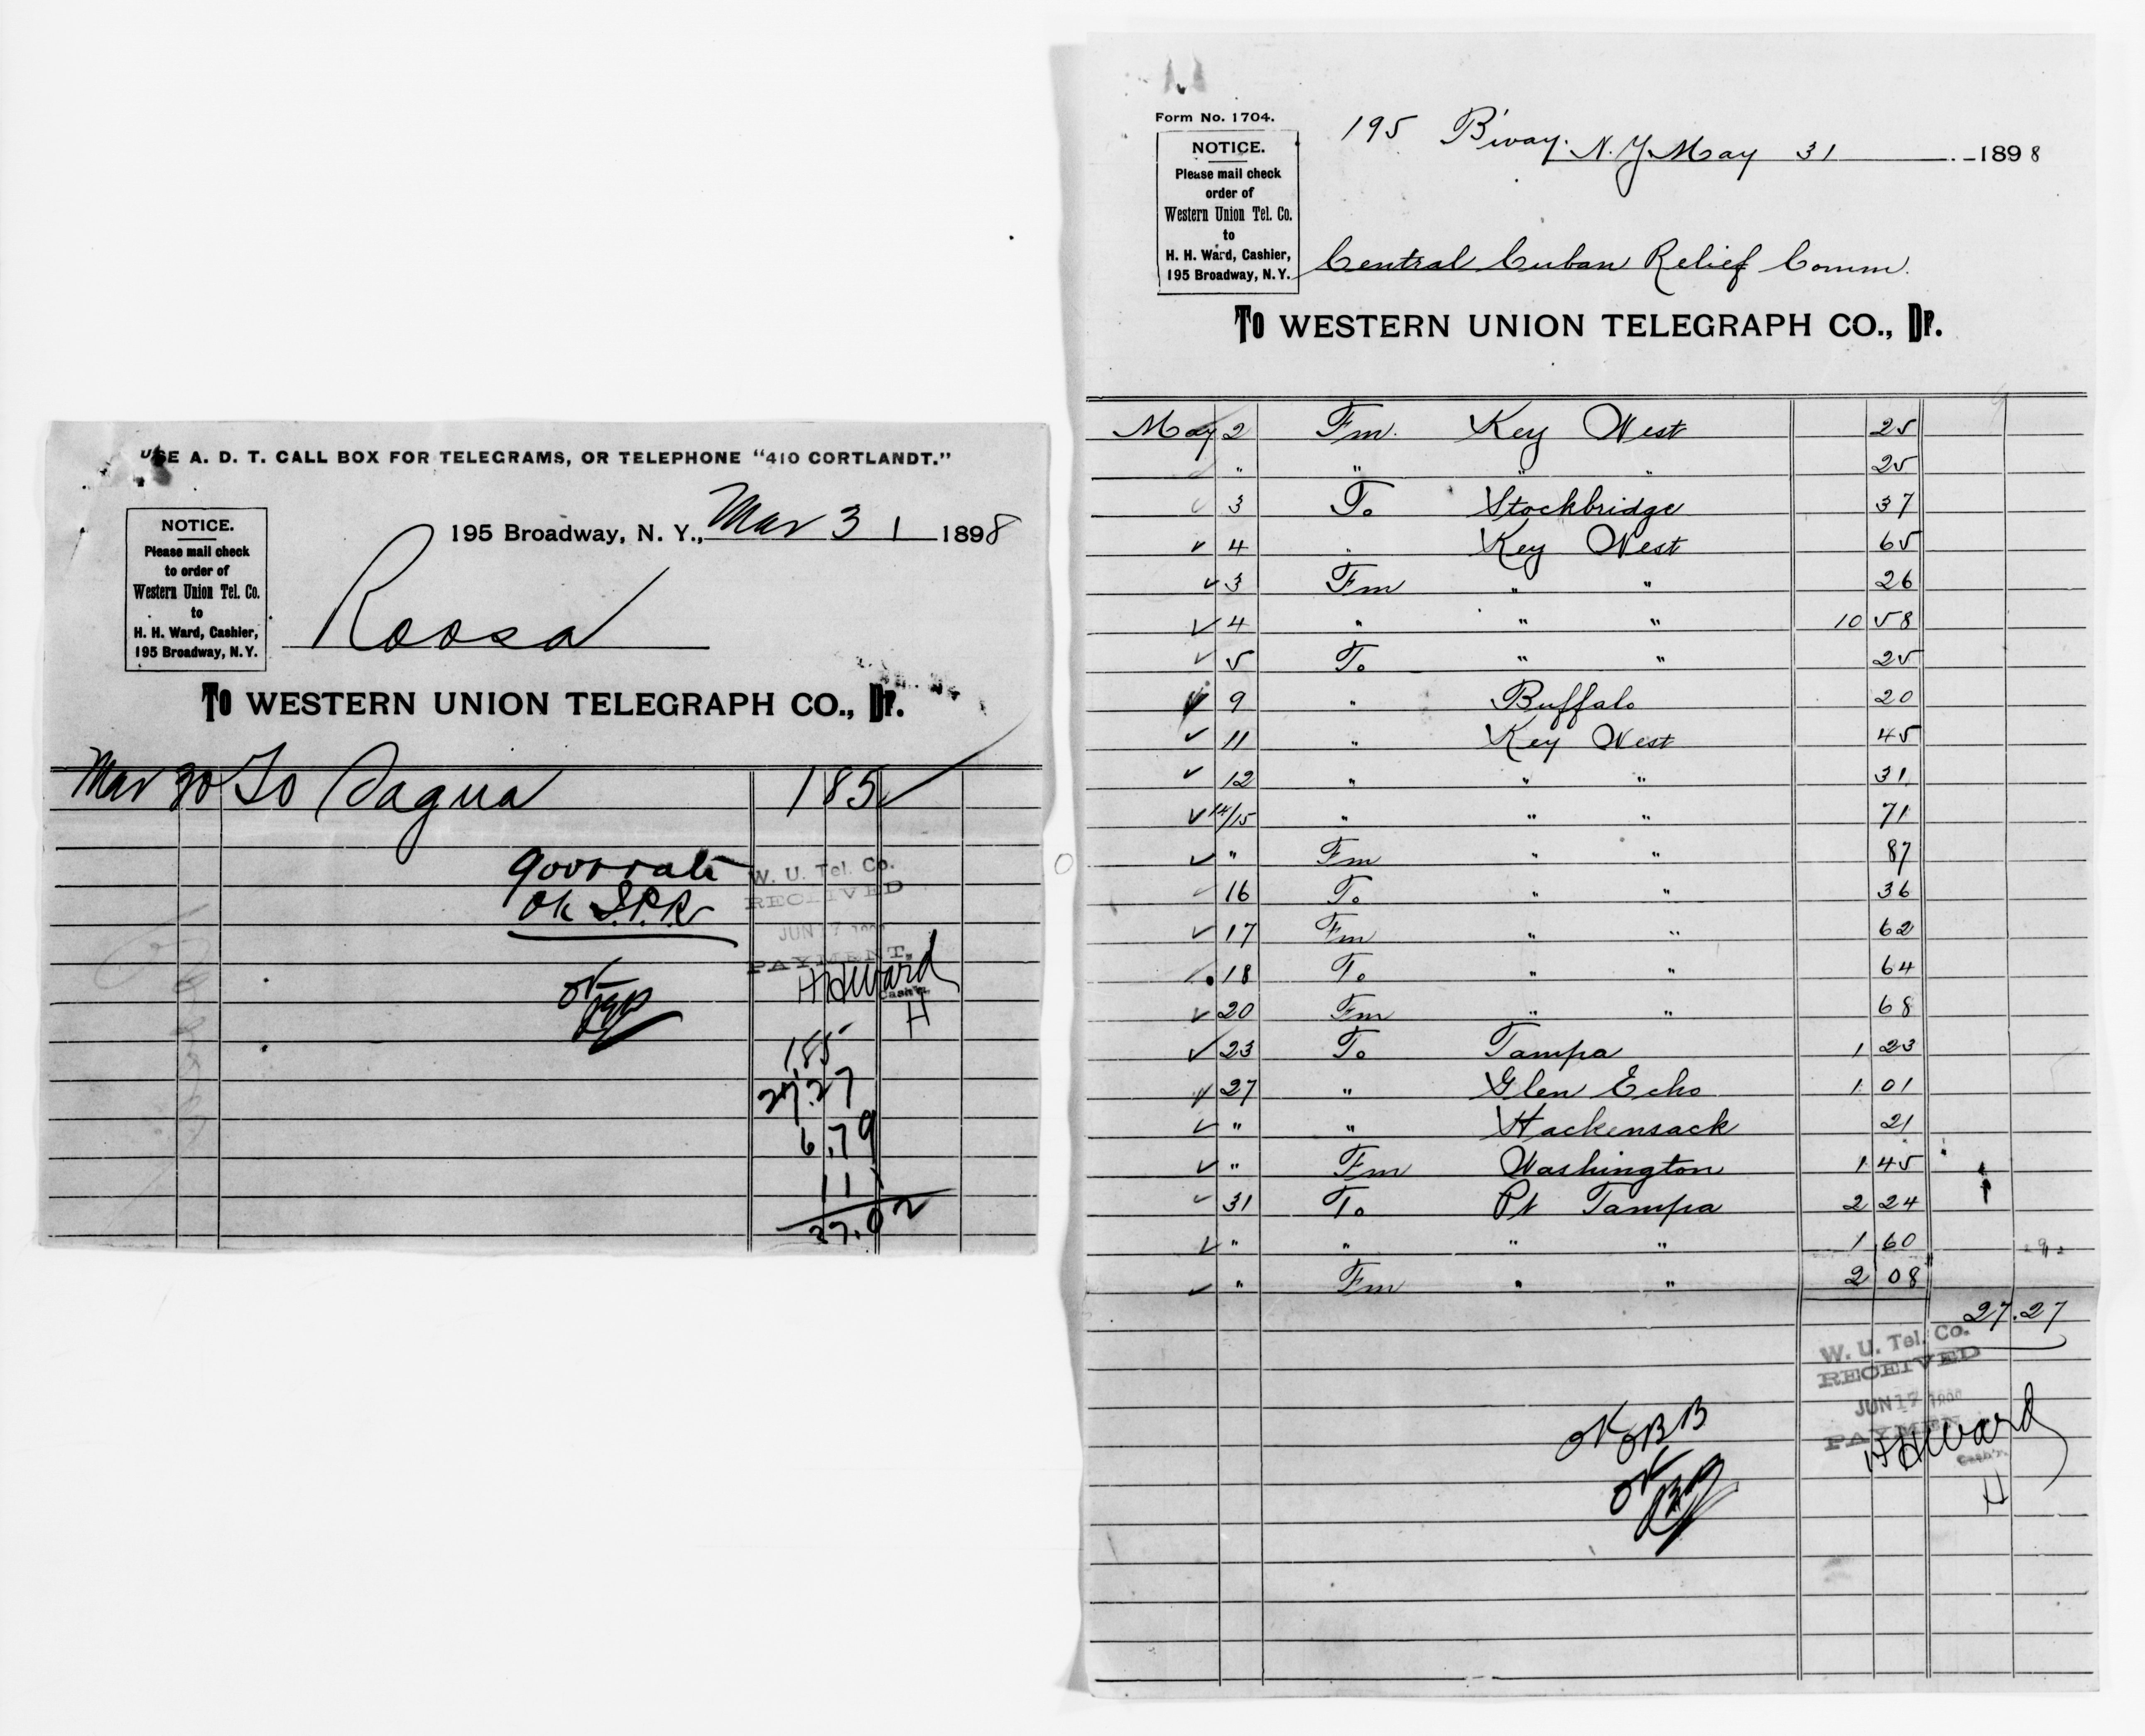 USE A. D. T. CALL BOX FOR TELEGRAMS, OR TELEPHONE "410 CORTLANDT."
NOTICE.
Please mail check
to order of
Western Union Tel. Co.
to
H. H. Ward, Cashier,
195 Broadway, N. Y.
195 Broadway, N. Y., Mar 31 1898
Roosa
To WESTERN UNION TELEGRAPH CO., Dr.
Mar 30 To Sagua 1 85
Govt rate
OK S.P.R
W. U. Tel. Co.
RECEIVED
JUN 17
PAYMENT.
HHWard
Cash'r.
H
OK
1.85
27.27
6.79
1 11
37.02
Form No. 1704.
NOTICE.
Please mail check
order of
Western Union Tel. Co.
to
H. H. Ward, Cashier,
195 Broadway, N. Y.
195 B'way. N. Y May 31 1898
Central Cuban Relief Comm.
To WESTERN UNION TELEGRAPH CO., Dr.
May 2 Fm. Key West 25
" " " " 25
3 To Stockbridge 37
4 " Key West 65
3 Fm " " 26
4 " " " 10 58
5 To " " 25
9 " Buffalo 20
11 " Key West 45
12 " " " 31
14/15 " " " 71
" Fm " " 87
16 To " " 36
17 Fm " " 62
18 To " " 64
20 Fm " " 68
23 To Tampa 1 23
27 " Glen Echo 1 01
" " Hackensack 21
" Fm Washington 1 45
31 To Pt Tampa 2 24
" " " " 1 60
" Fm " " 2 08
27.27
W. U. Tel. Co.
RECEIVED
JUN 17
PAYMEN
HHWard
Cash'r.
H
OK BB
OK